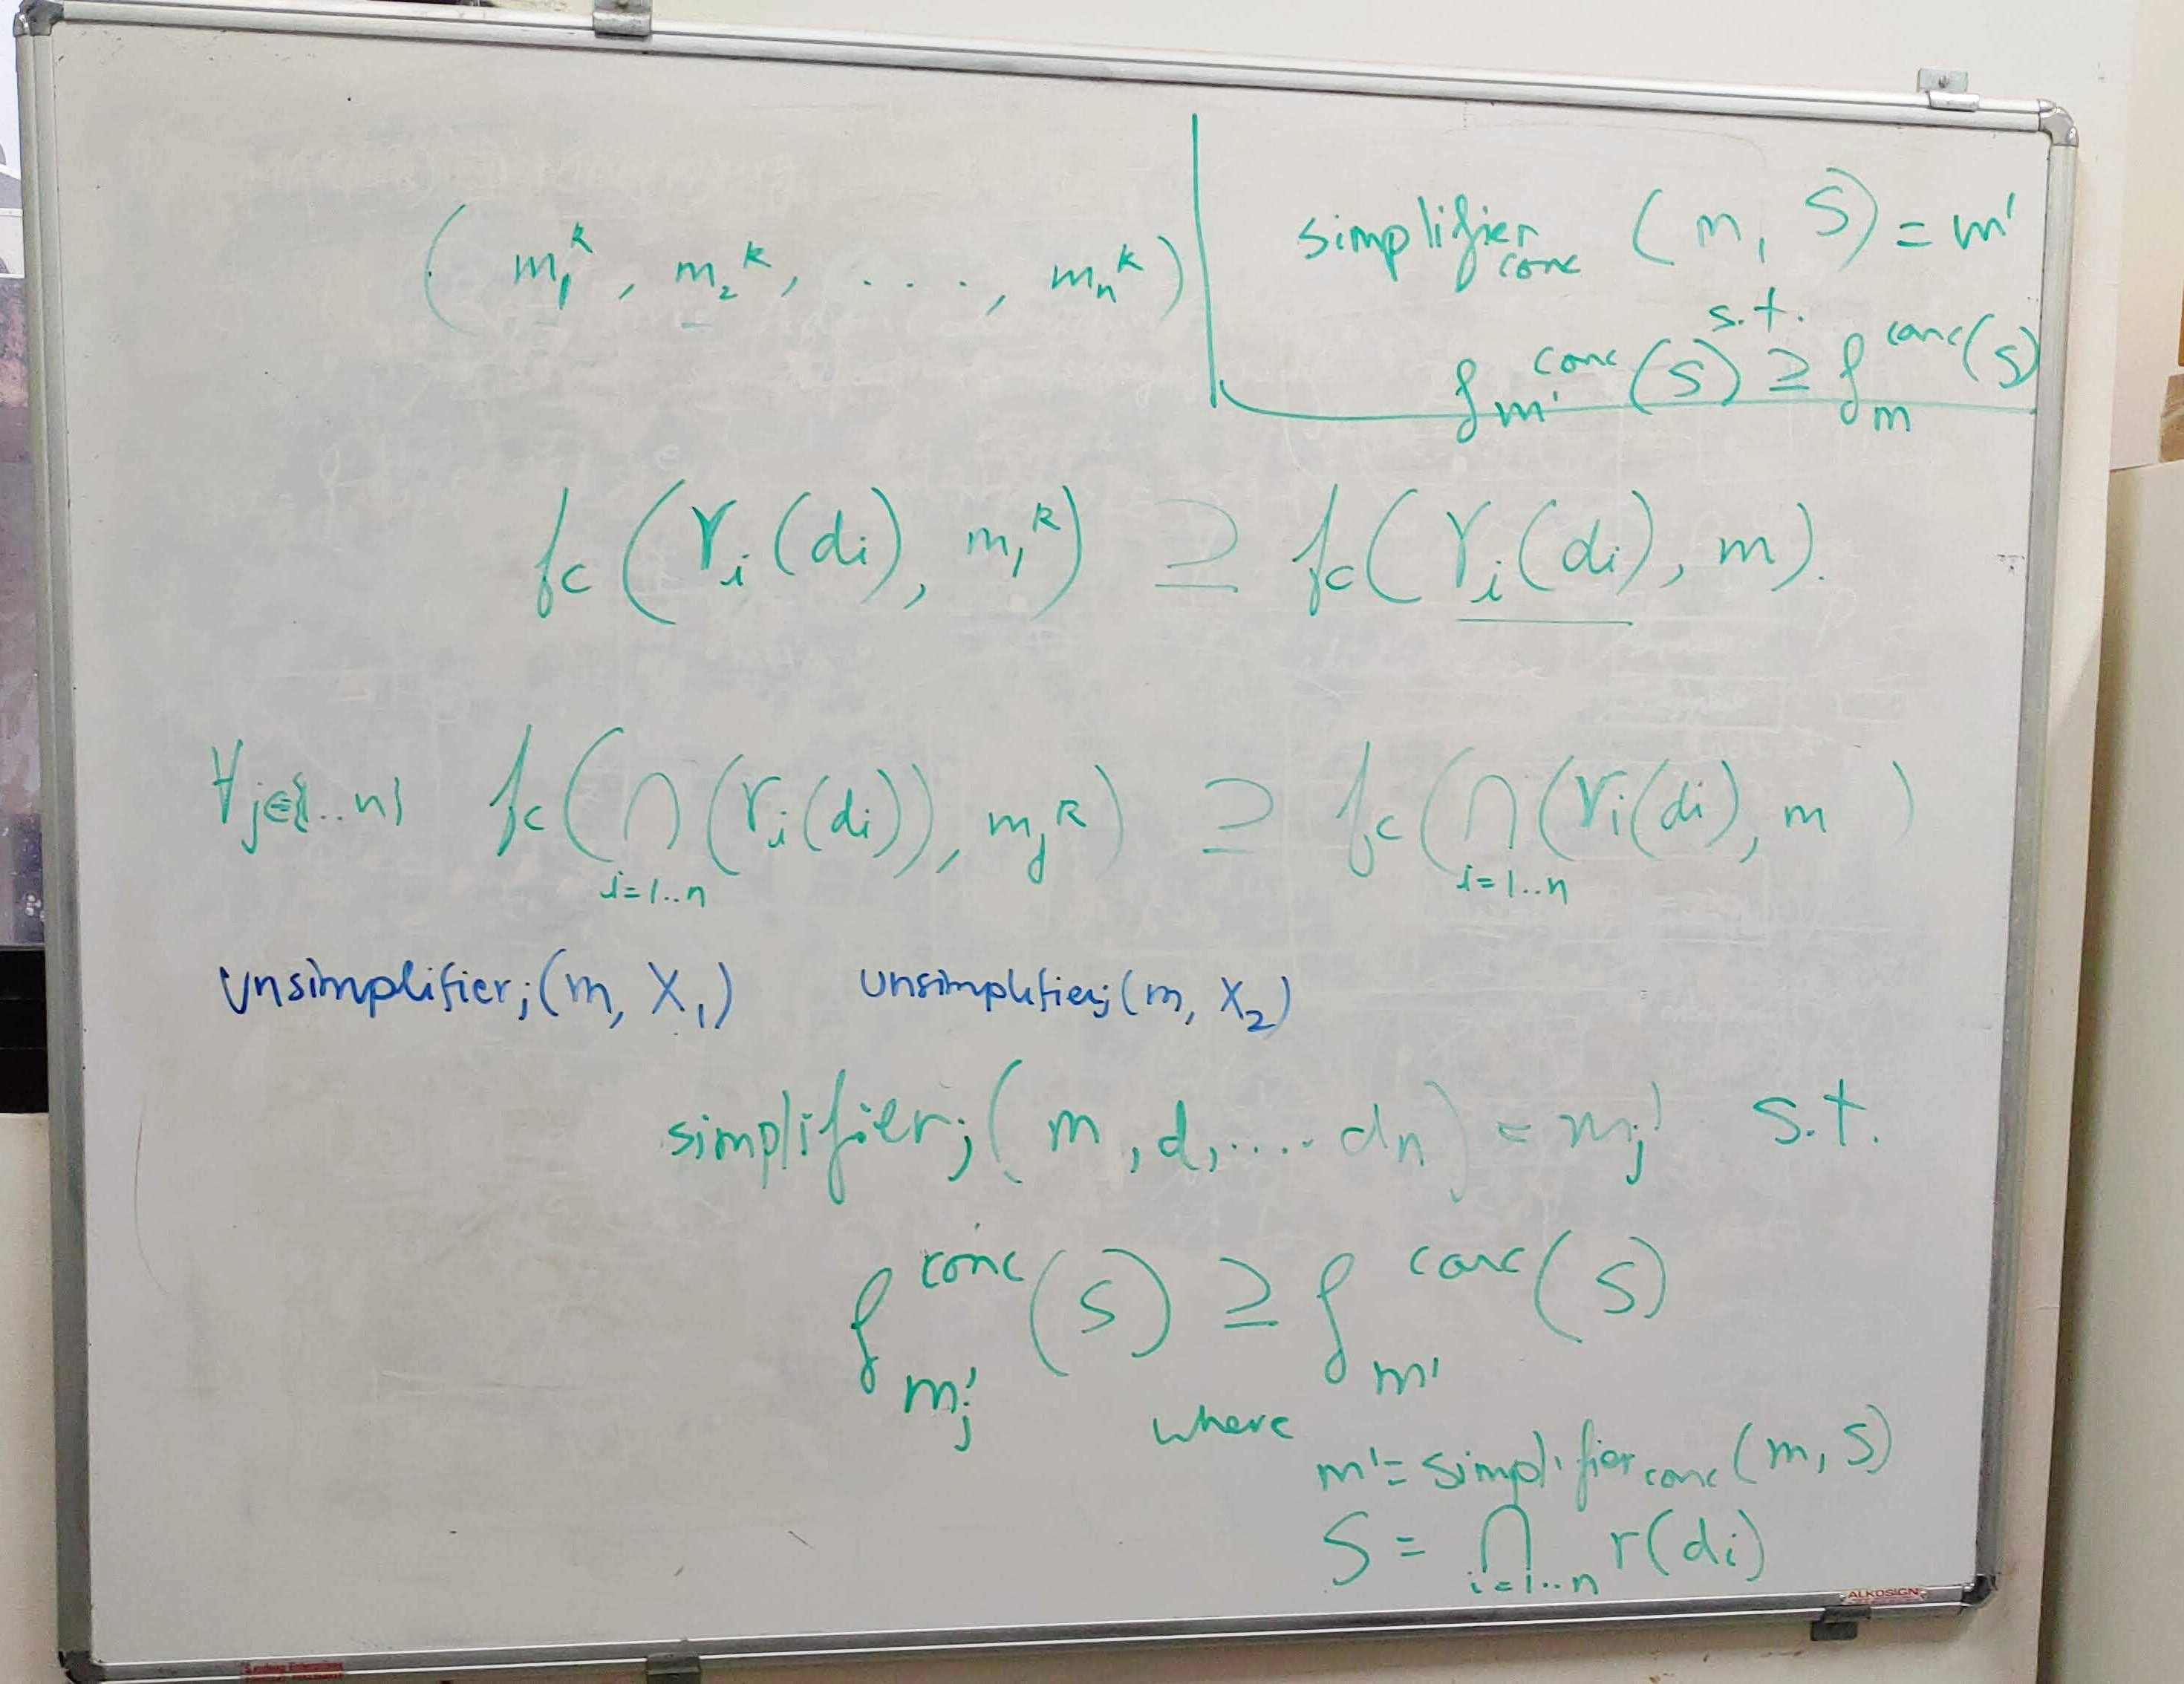 ( m₁ᴿ , m₂ᴿ, . . . . , mₙᴿ )
simplifier_conc ( m, S ) = m'
s.t.
f_m'^conc (S) ⊇ f_m^conc (S)
f_c ( γ_i (d_i), m₁ᴿ ) ⊇ f_c ( γ_i (d_i), m ).
∀ j∈{1..n} f_c ( ∩_{i=1..n} (γ_i (d_i)), m_jᴿ ) ⊇ f_c ( ∩_{i=1..n} (γ_i (d_i), m )
Unsimplifier_j (m, X₁) Unsimplifier_j (m, X₂)
simplifier_j ( m, d₁.... d_n ) = m_j' s.t.
f_{m_j'}^conc (S) ⊇ f_{m'}^conc (S)
where
m' = simplifier_conc (m, S)
S = ∩_{i=1..n} r(d_i)
ALKOSIGN